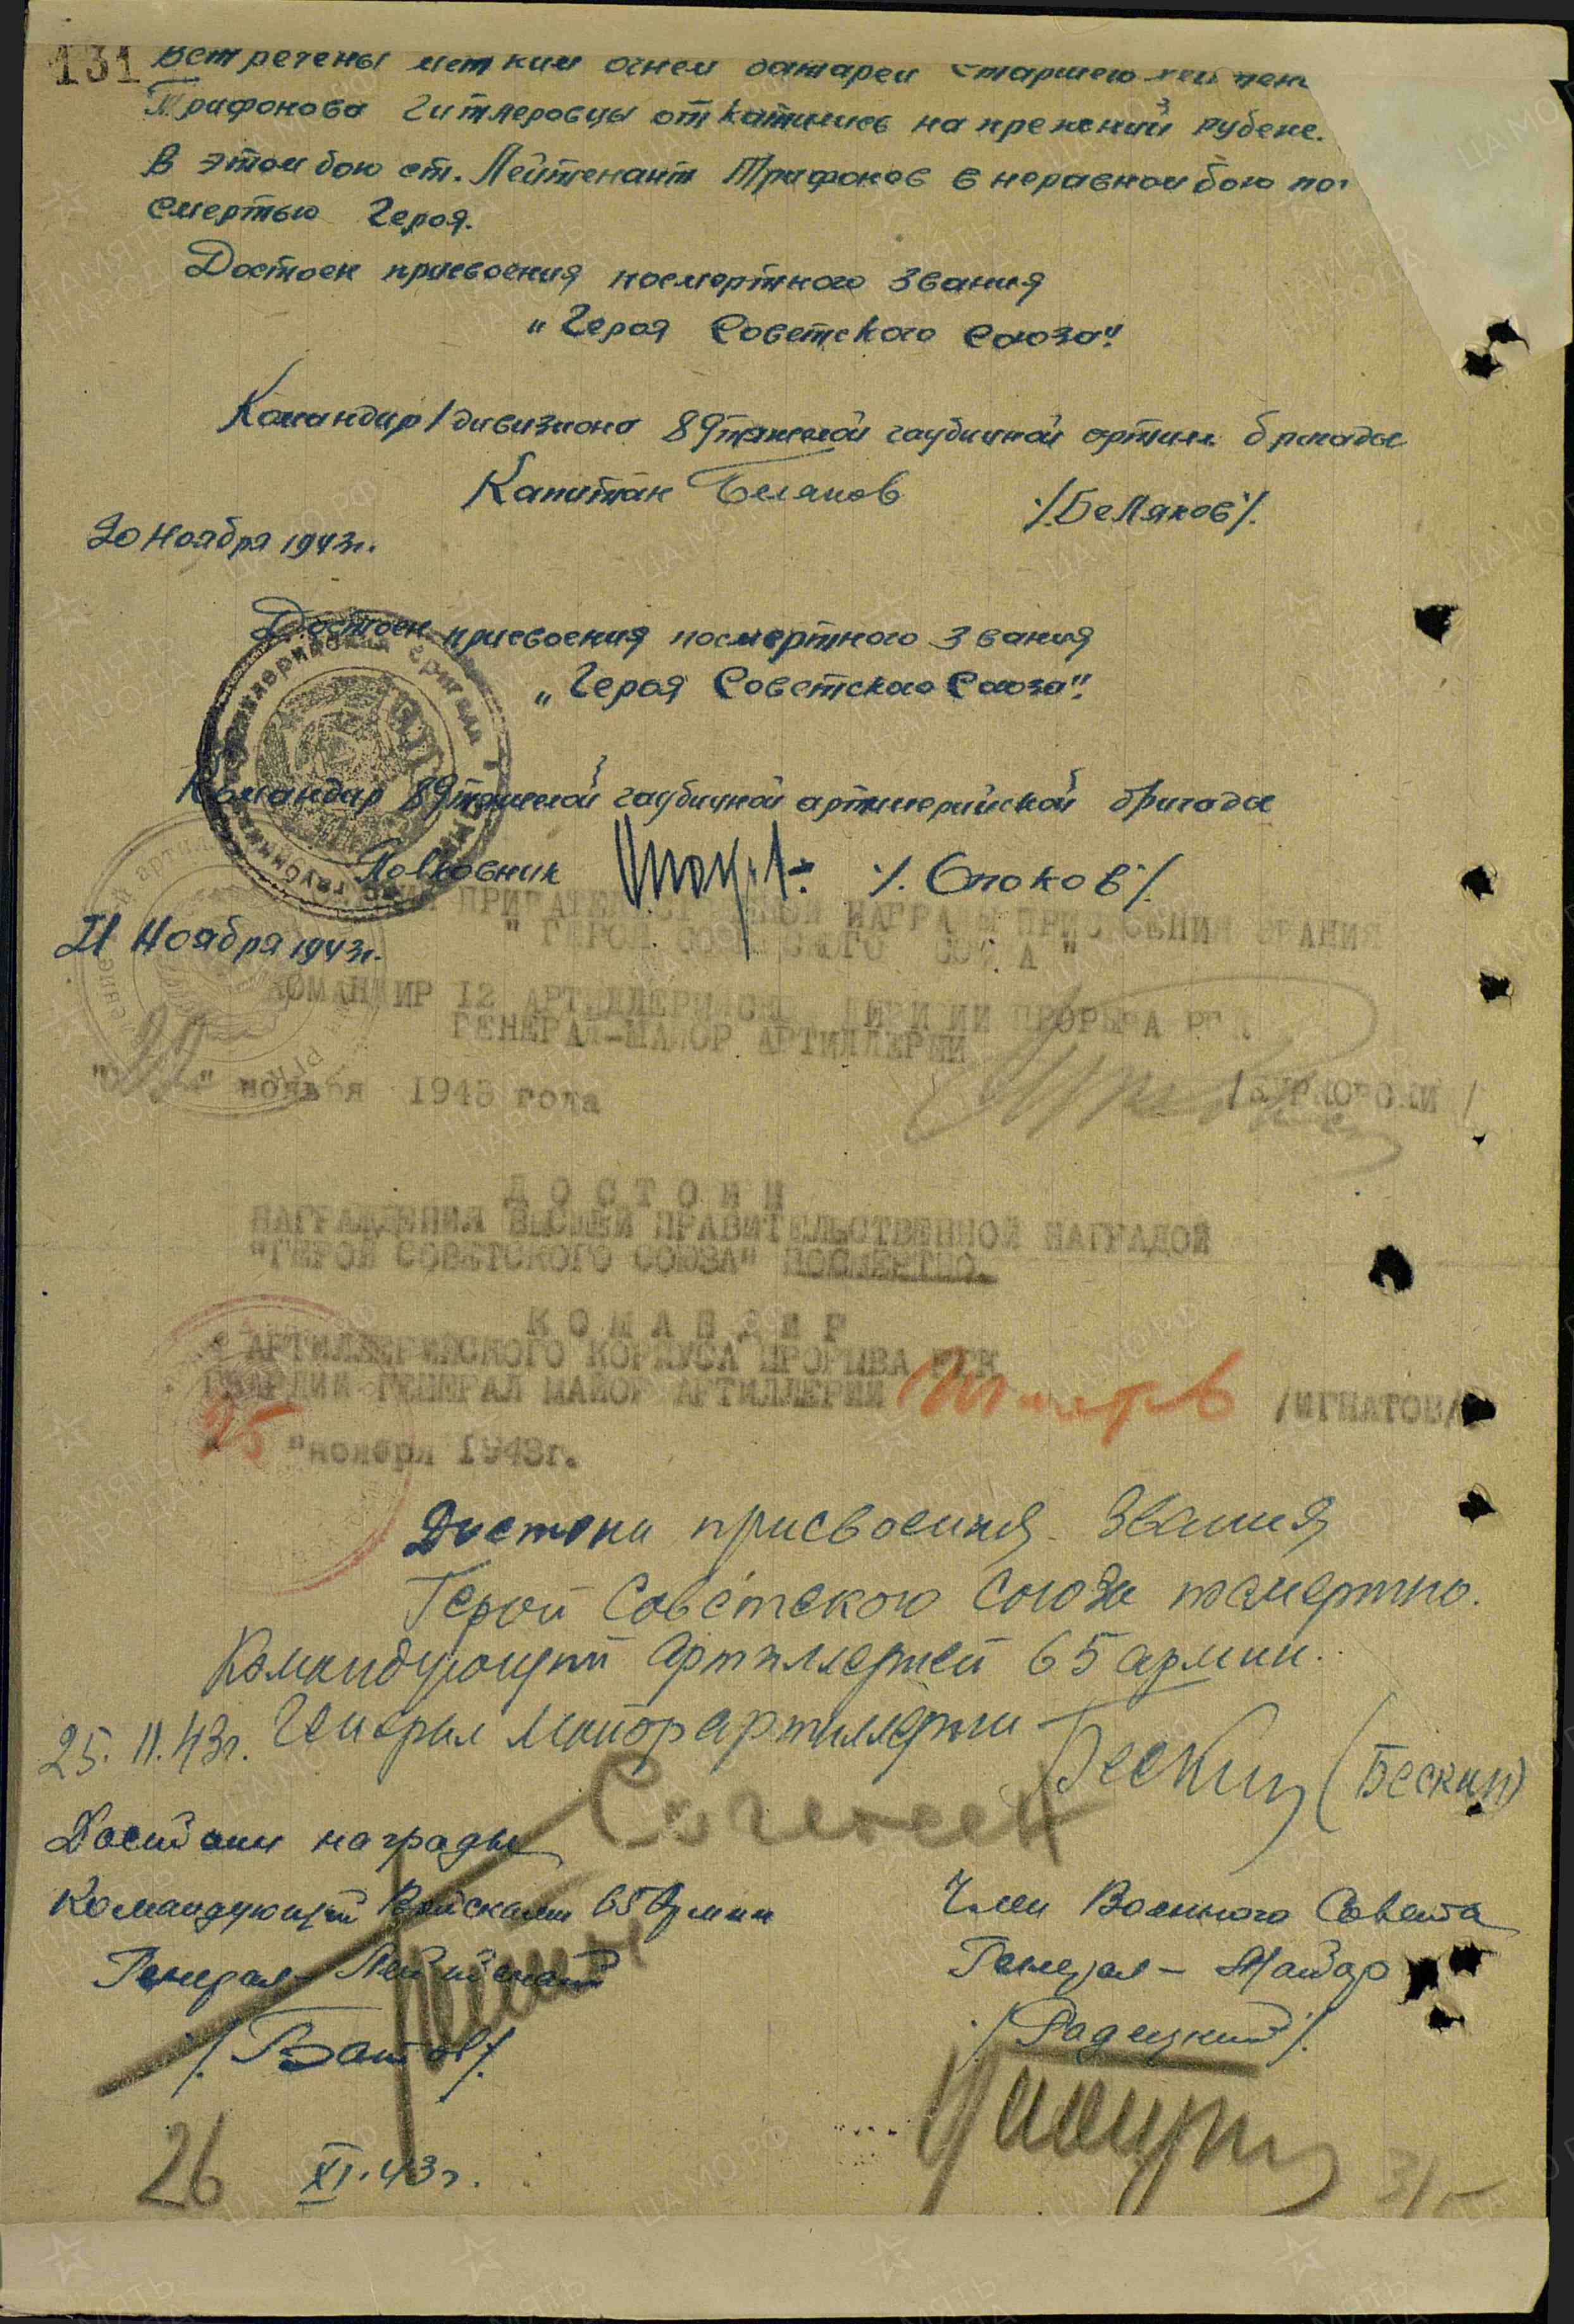 131
Встречены метким огнем батареи старшего лейтен
Трифонова Гитлеровцы откатились на прежний рубеж.
В этом бою ст. Лейтенант Трифонов в неравном бою по
смертью Героя.
Достоен присвоения посмертного звания
„Героя Советского Союза".
Командир 1 дивизиона 89 тяжелой гаубичной артилл бригады
Капитан Беляков /.Беляков/.
20 Ноября 1943г.
Достоен присвоения посмертного звания
„Героя Советского Союза".
Командир 89 тяжелой гаубичной артиллерийской бригады
Полковник /.Опоков/.
21 Ноября 1943г.
ЗВАНИЯ
КОМАНДИР 12 АРТИЛЛЕРИЙСКОЙ ДИВИЗИИ ПРОРЫВА РГК
ГЕНЕРАЛ-МАЙОР АРТИЛЛЕРИИ
" " ноября 1943 года /КУРКОВСКИЙ/
ДОСТОИН
НАГРАЖДЕНИЯ ВЫСШЕЙ ПРАВИТЕЛЬСТВЕННОЙ НАГРАДОЙ
"ГЕРОЙ СОВЕТСКОГО СОЮЗА" ПОСМЕРТНО.
КОМАНДИР
АРТИЛЛЕРИЙСКОГО КОРПУСА ПРОРЫВА РГК
ГВАРДИИ ГЕНЕРАЛ МАЙОР АРТИЛЛЕРИИ /ИГНАТОВ/
25 "ноября 1943г.
Достоин присвоения звания
Герой Советского Союза посмертно.
Командующий Артиллерией 65 армии.
25.11.43г. Генерал Майор артиллерии Бескин (Бескин)
Сочинен
Достоин награды
Командующий Войсками 65 Армии
Генерал-Лейтенант
/.Батов/.
Член Военного Совета
Генерал-Майор
/.Радецкий/.
26 XI.43г.